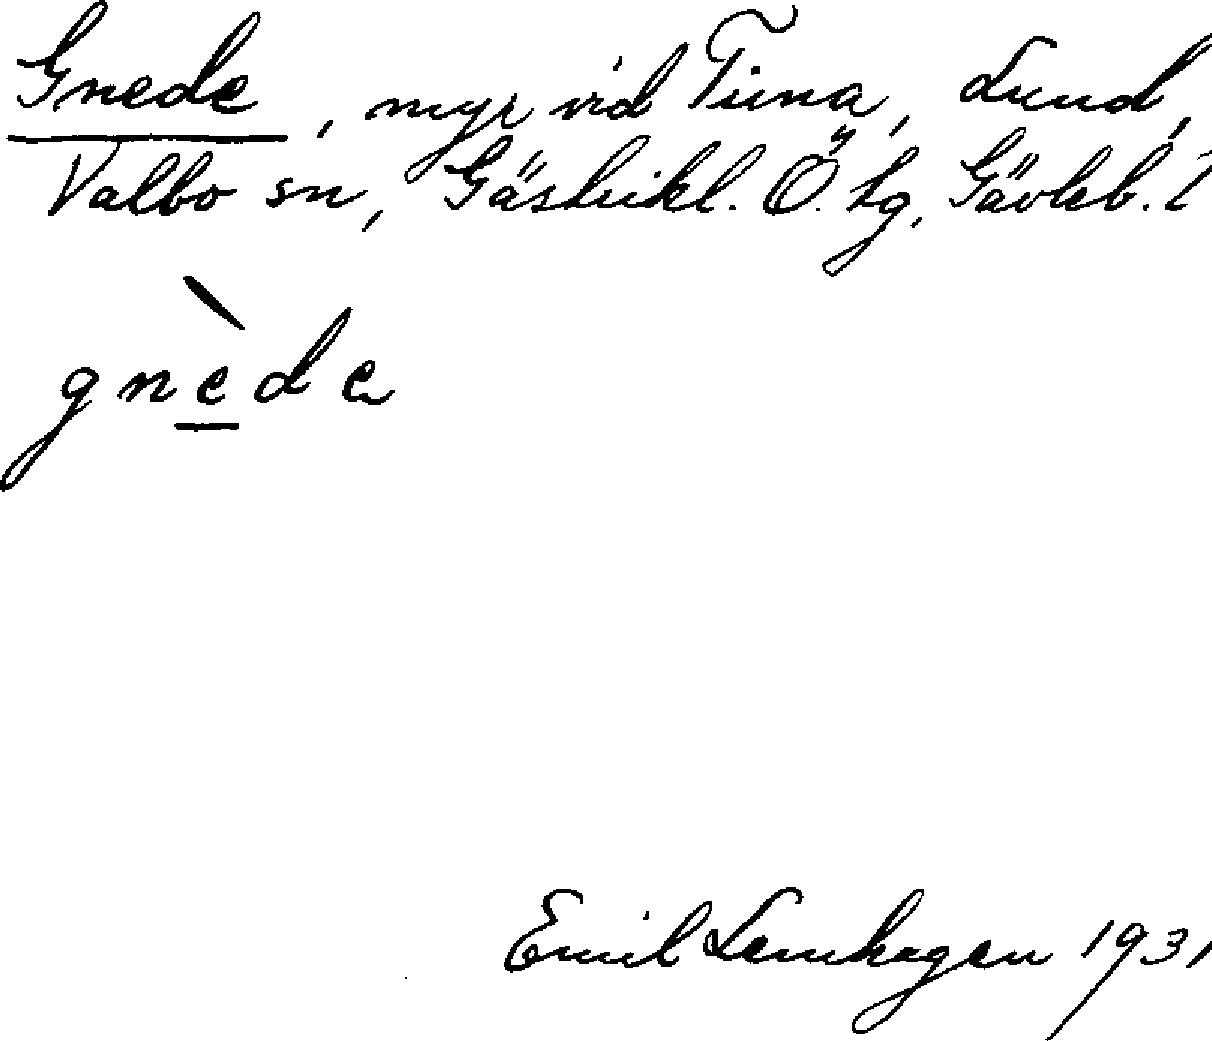 Gnede, myr vid Tuna, Lund,
Valbo sn, Gästrikl. Ö. tg, Gävleb. l
gnède
Emil Lenhagen 1931